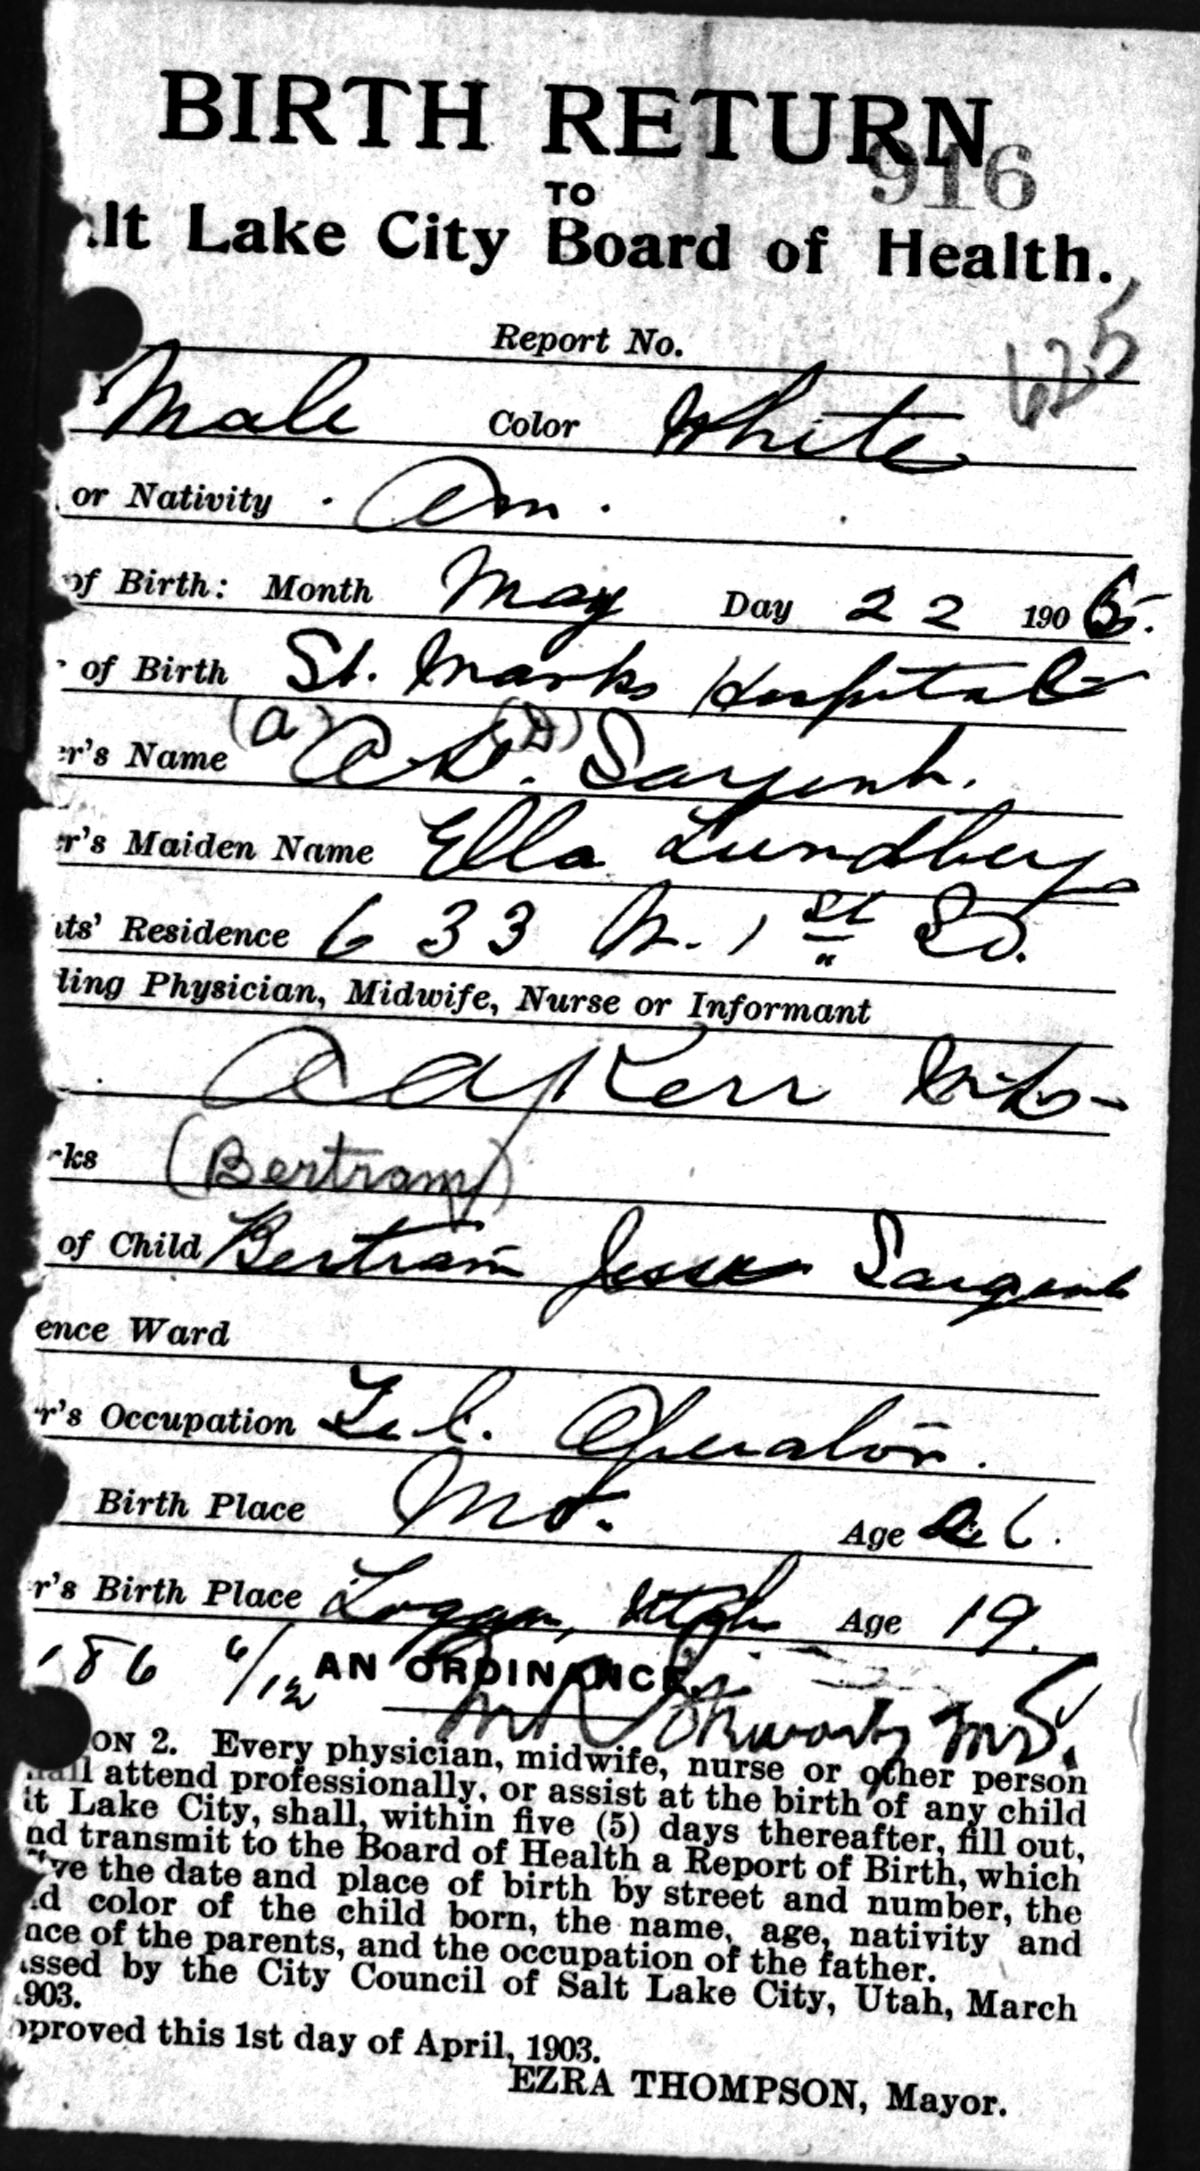 BIRTH RETURN
916
TO
lt Lake City Board of Health.
Report No.
625
Male Color White
or Nativity Am.
of Birth: Month May Day 22 1905.
of Birth St. Marks Hospital
(a) (B)
er's Name A. B. Sargent.
er's Maiden Name Ella Lundberg
ts' Residence 633 W. 1st So.
ding Physician, Midwife, Nurse or Informant
A A Kerr M.D.
rks (Bertram)
of Child Bertram Jesse Sargent
ence Ward
r's Occupation Tel. Operator.
Birth Place Mo. Age 26.
r's Birth Place Logan, Utah Age 19.
186 6/12 AN ORDINANCE.
M.D.
ON 2. Every physician, midwife, nurse or other person
hall attend professionally, or assist at the birth of any child
lt Lake City, shall, within five (5) days thereafter, fill out,
nd transmit to the Board of Health a Report of Birth, which
ve the date and place of birth by street and number, the
d color of the child born, the name, age, nativity and
nce of the parents, and the occupation of the father.
assed by the City Council of Salt Lake City, Utah, March
1903.
pproved this 1st day of April, 1903.
EZRA THOMPSON, Mayor.